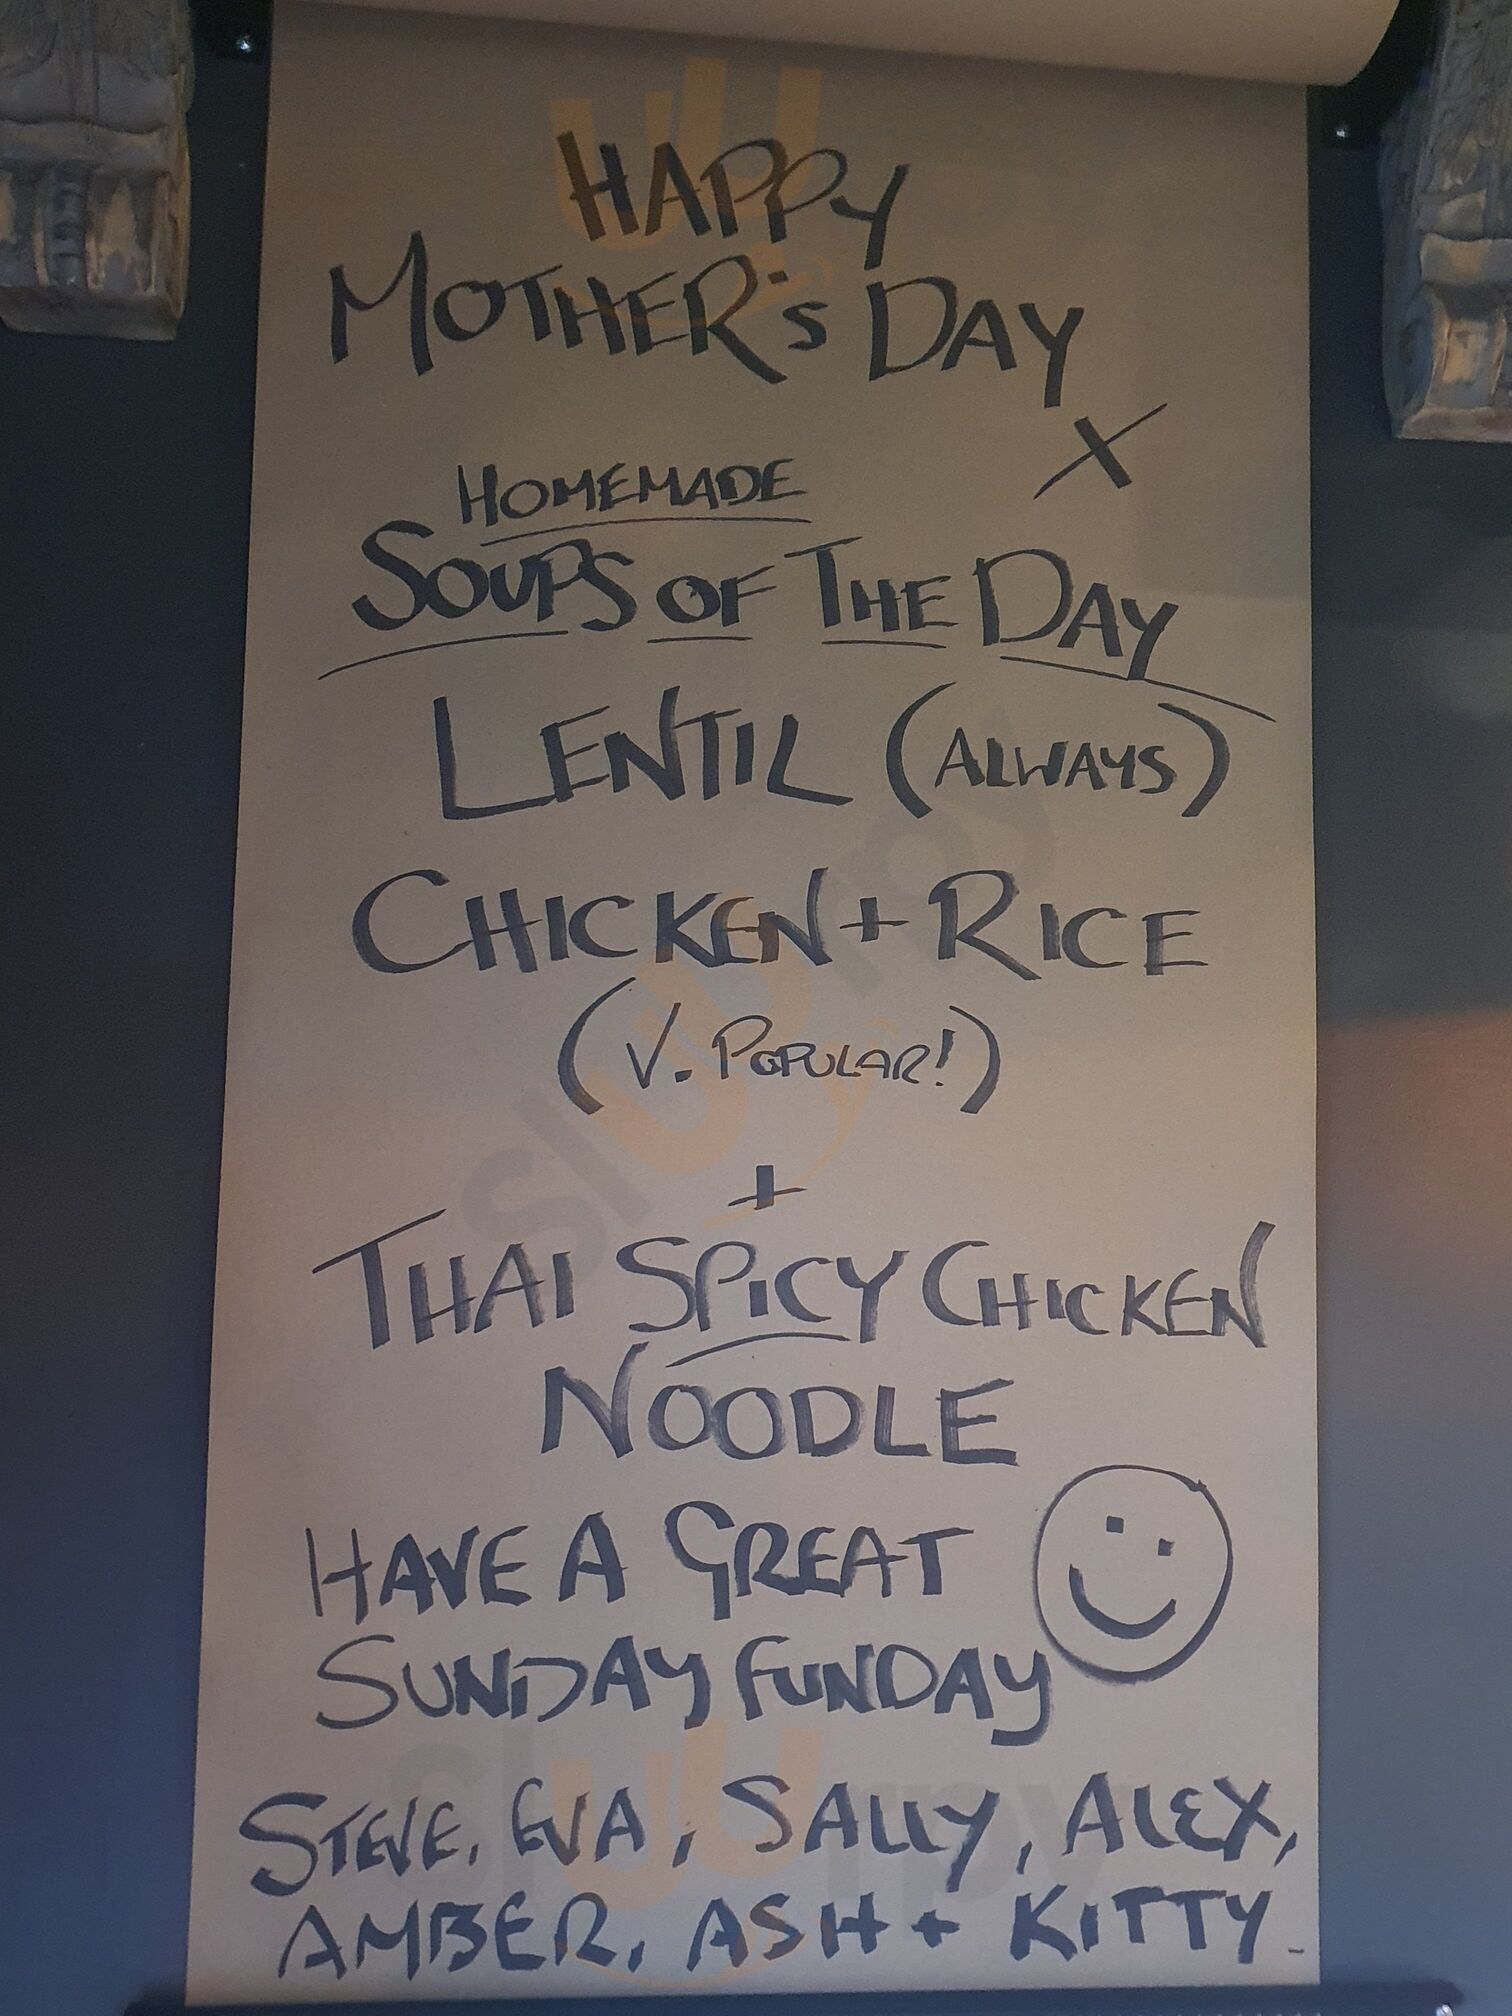 HAPPY
MOTHER'S DAY
X
HOMEMADE
SOUPS OF THE DAY
LENTIL (ALWAYS)
CHICKEN + RICE
(V. POPULAR!)
+
THAI SPICY CHICKEN
NOODLE
HAVE A GREAT
SUNDAY FUNDAY
STEVE, EVA, SALLY, ALEX,
AMBER, ASH + KITTY.
slurpy
slurpy